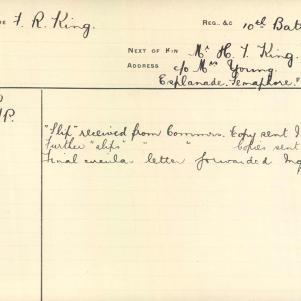 F. R. King. REG. &C 10th Bat
NEXT OF KIN Mr H. F. King.
ADDRESS c/o Mrs Young
Esplanade. Semaphore.
"Slip" received from Commrs. Copy sent
Further "slips" " " Copies sent
Final circular letter forwarded